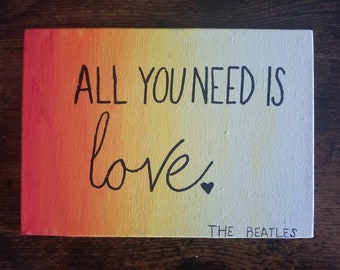 ALL YOU NEED IS
love.
THE BEATLES